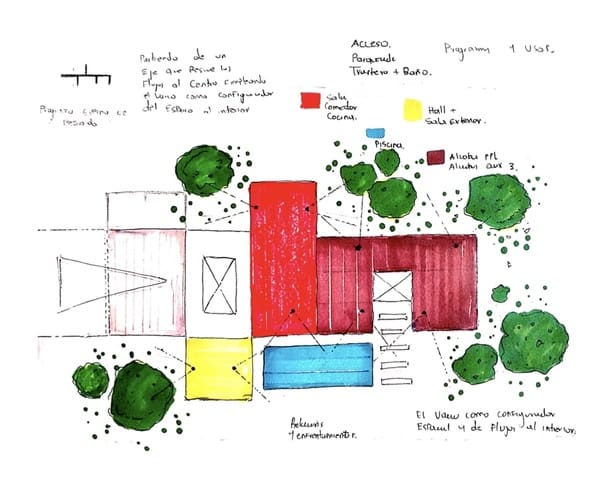 Partiendo de un
Eje que Resuelve los
Flujos al Centro Empleando
el Vacio como configurador
del Espacio al interior
ACCESO.
Parqueade
Trastero + Baño.
Programa y Usos.
Sala
Comedor
Cocina.
Hall +
Sala Exterior.
Piscina.
Alcoba PPL
Alcobas aux 3.
y enfrentamientos.
El Vacio como configurador
Espacial y de Flujos al interior.